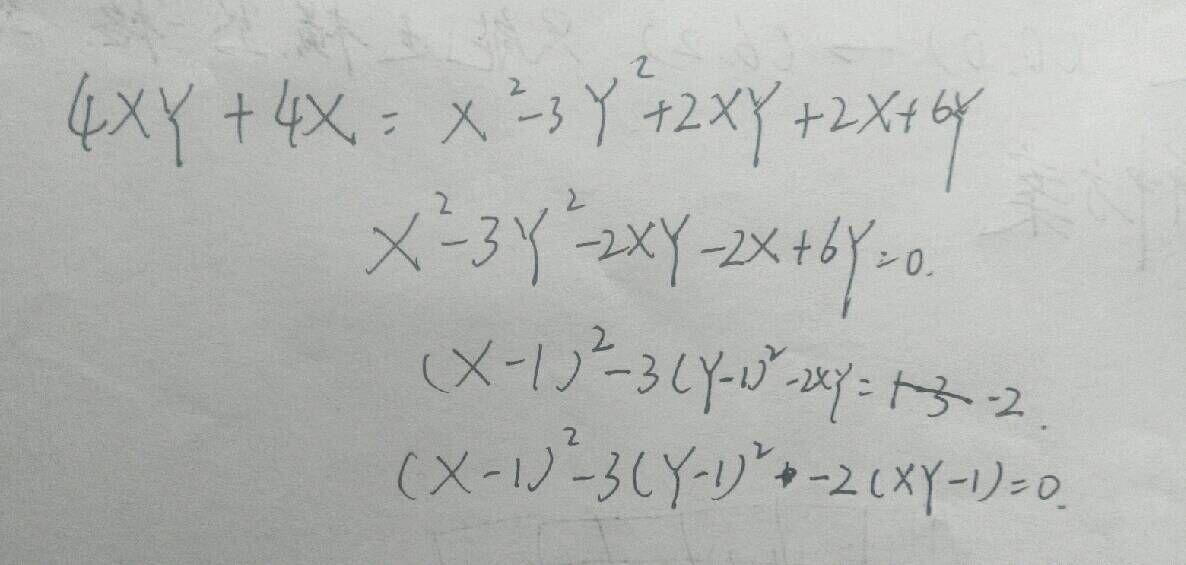 4XY + 4X = X² - 3Y² + 2XY + 2X + 6Y
X² - 3Y² - 2XY - 2X + 6Y = 0.
(X - 1)² - 3(Y - 1)² - 2XY = -2.
(X - 1)² - 3(Y - 1)² - 2(XY - 1) = 0.